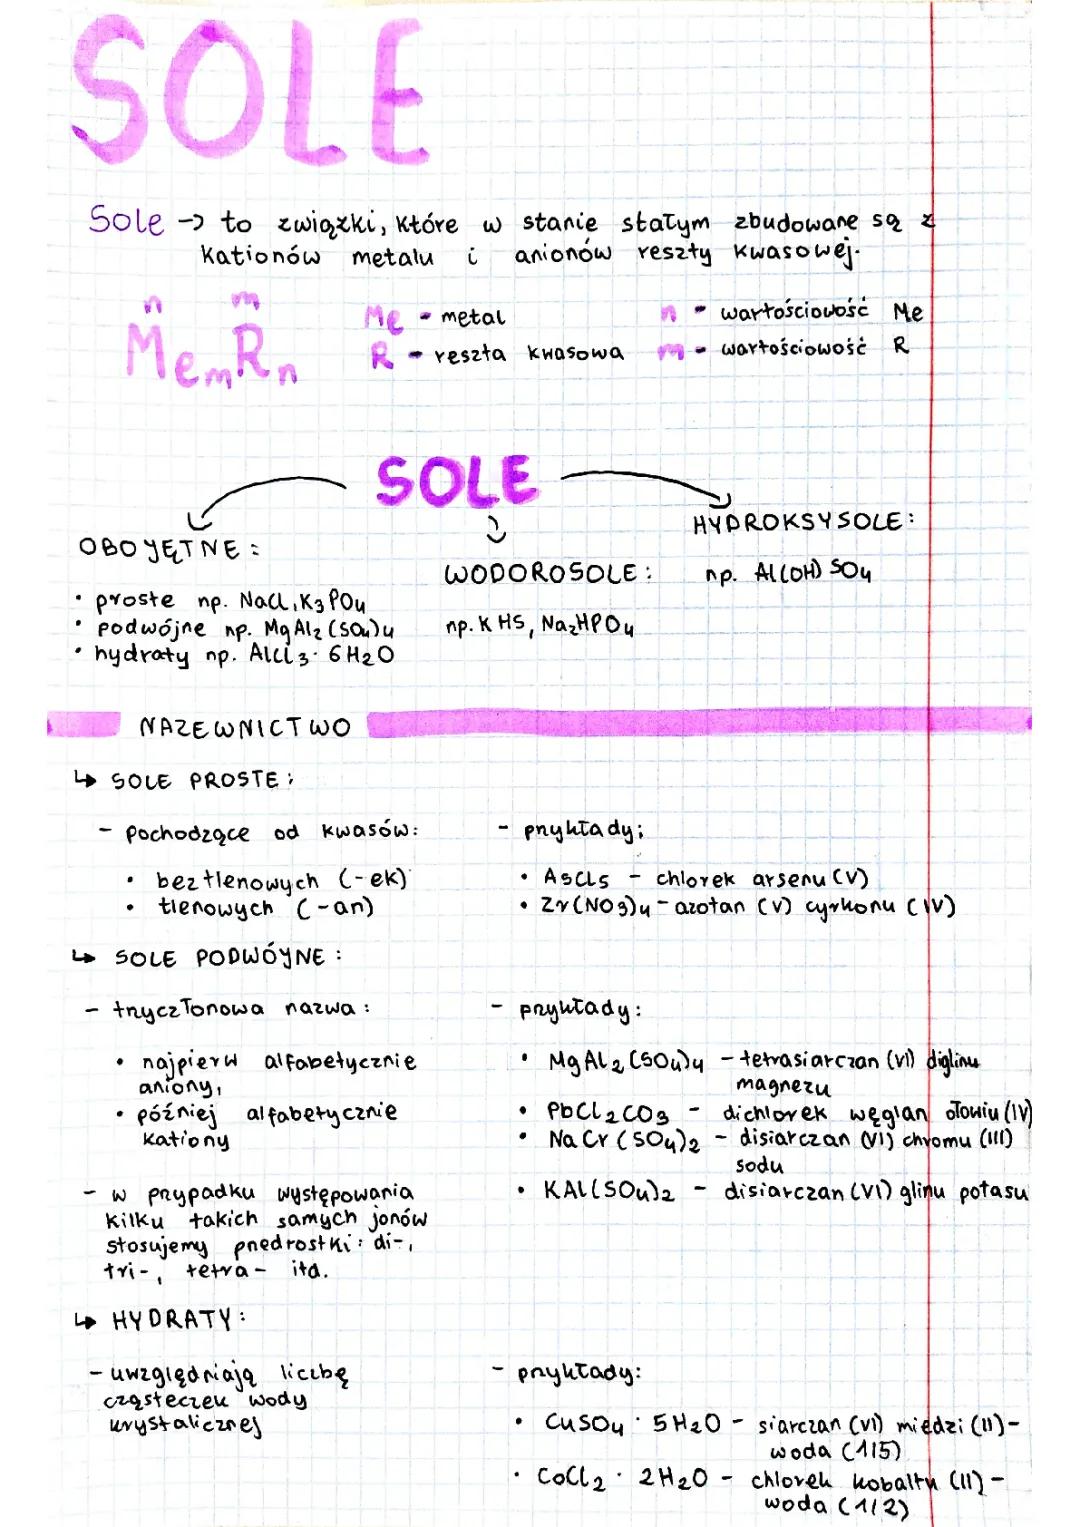 SOLE
Sole → to związki, które w stanie stałym zbudowane są z
kationów metalu i anionów reszty kwasowej.
n m
MemRn
Me - metal
R - reszta kwasowa
n - wartościowość Me
m - wartościowość R
SOLE
OBOJĘTNE:
• proste np. NaCl, K3PO4
• podwójne np. MgAl2(SO4)4
• hydraty np. AlCl3 · 6H2O
WODOROSOLE:
np. KHS, Na2HPO4
HYDROKSYSOLE:
np. Al(OH)SO4
NAZEWNICTWO
↳ SOLE PROSTE:
- pochodzące od kwasów:
• beztlenowych (-ek)
• tlenowych (-an)
- przykłady:
• AsCl5 - chlorek arsenu (V)
• Zr(NO3)4 - azotan (V) cyrkonu (IV)
↳ SOLE PODWÓJNE:
- trzyczłonowa nazwa:
• najpierw alfabetycznie
aniony,
• później alfabetycznie
kationy
- w przypadku występowania
kilku takich samych jonów
stosujemy przedrostki: di-,
tri-, tetra- itd.
- przykłady:
• MgAl2(SO4)4 - tetrasiarczan (VI) diglinu
magnezu
• PbCl2CO3 - dichlorek węglan ołowiu (IV)
• NaCr(SO4)2 - disiarczan (VI) chromu (III)
sodu
• KAl(SO4)2 - disiarczan (VI) glinu potasu
↳ HYDRATY:
- uwzględniają liczbę
cząsteczek wody
krystalicznej
- przykłady:
• CuSO4 · 5H2O - siarczan (VI) miedzi (II) -
woda (1/5)
• CoCl2 · 2H2O - chlorek kobaltu (II) -
woda (1/2)